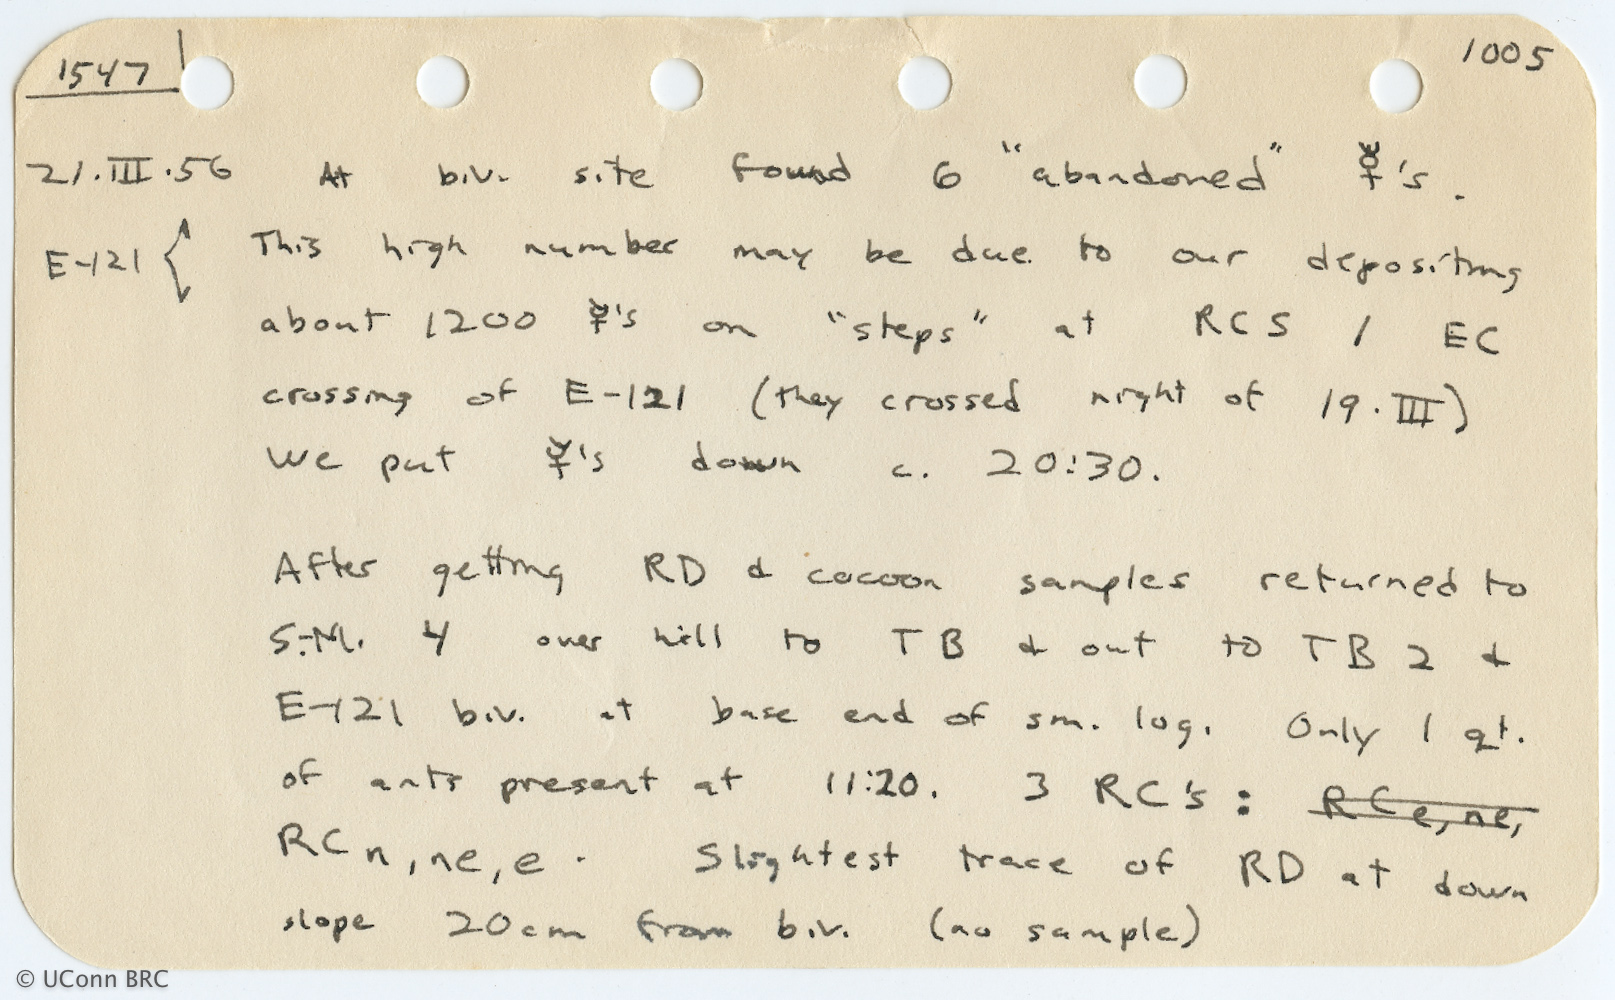 1547
1005
21.III.56 At biv. site found 6 "abandoned" ☿'s.
E-121 { This high number may be due to our depositing
about 1200 ☿'s on "steps" at RCS / EC
crossing of E-121 (they crossed night of 19.III)
We put ☿'s down c. 20:30.
After getting RD & cocoon samples returned to
S.M. 4 over hill to TB & out to TB 2 &
E-121 biv. at base end of sm. log. Only 1 qt.
of ants present at 11:20. 3 RC's: RC e, ne,
RC n, ne, e. Slightest trace of RD at down
slope 20cm from biv. (no sample)
© UConn BRC